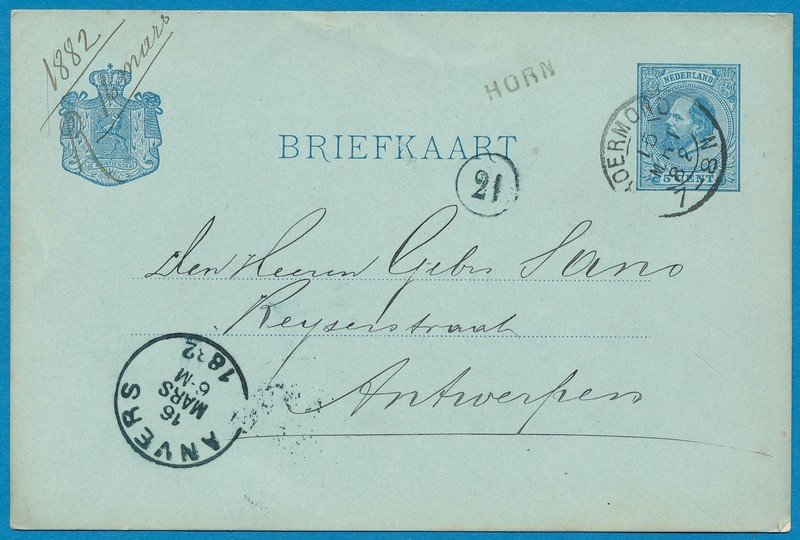 1882
16 mars
HORN
NEDERLAND
5 CENT
ROERMOND
15
MRT
82
BRIEFKAART
21
Den Heeren Gebrs Sano
Keyserstraat
Antwerpen
ANVERS
16
MARS
6-M
1882